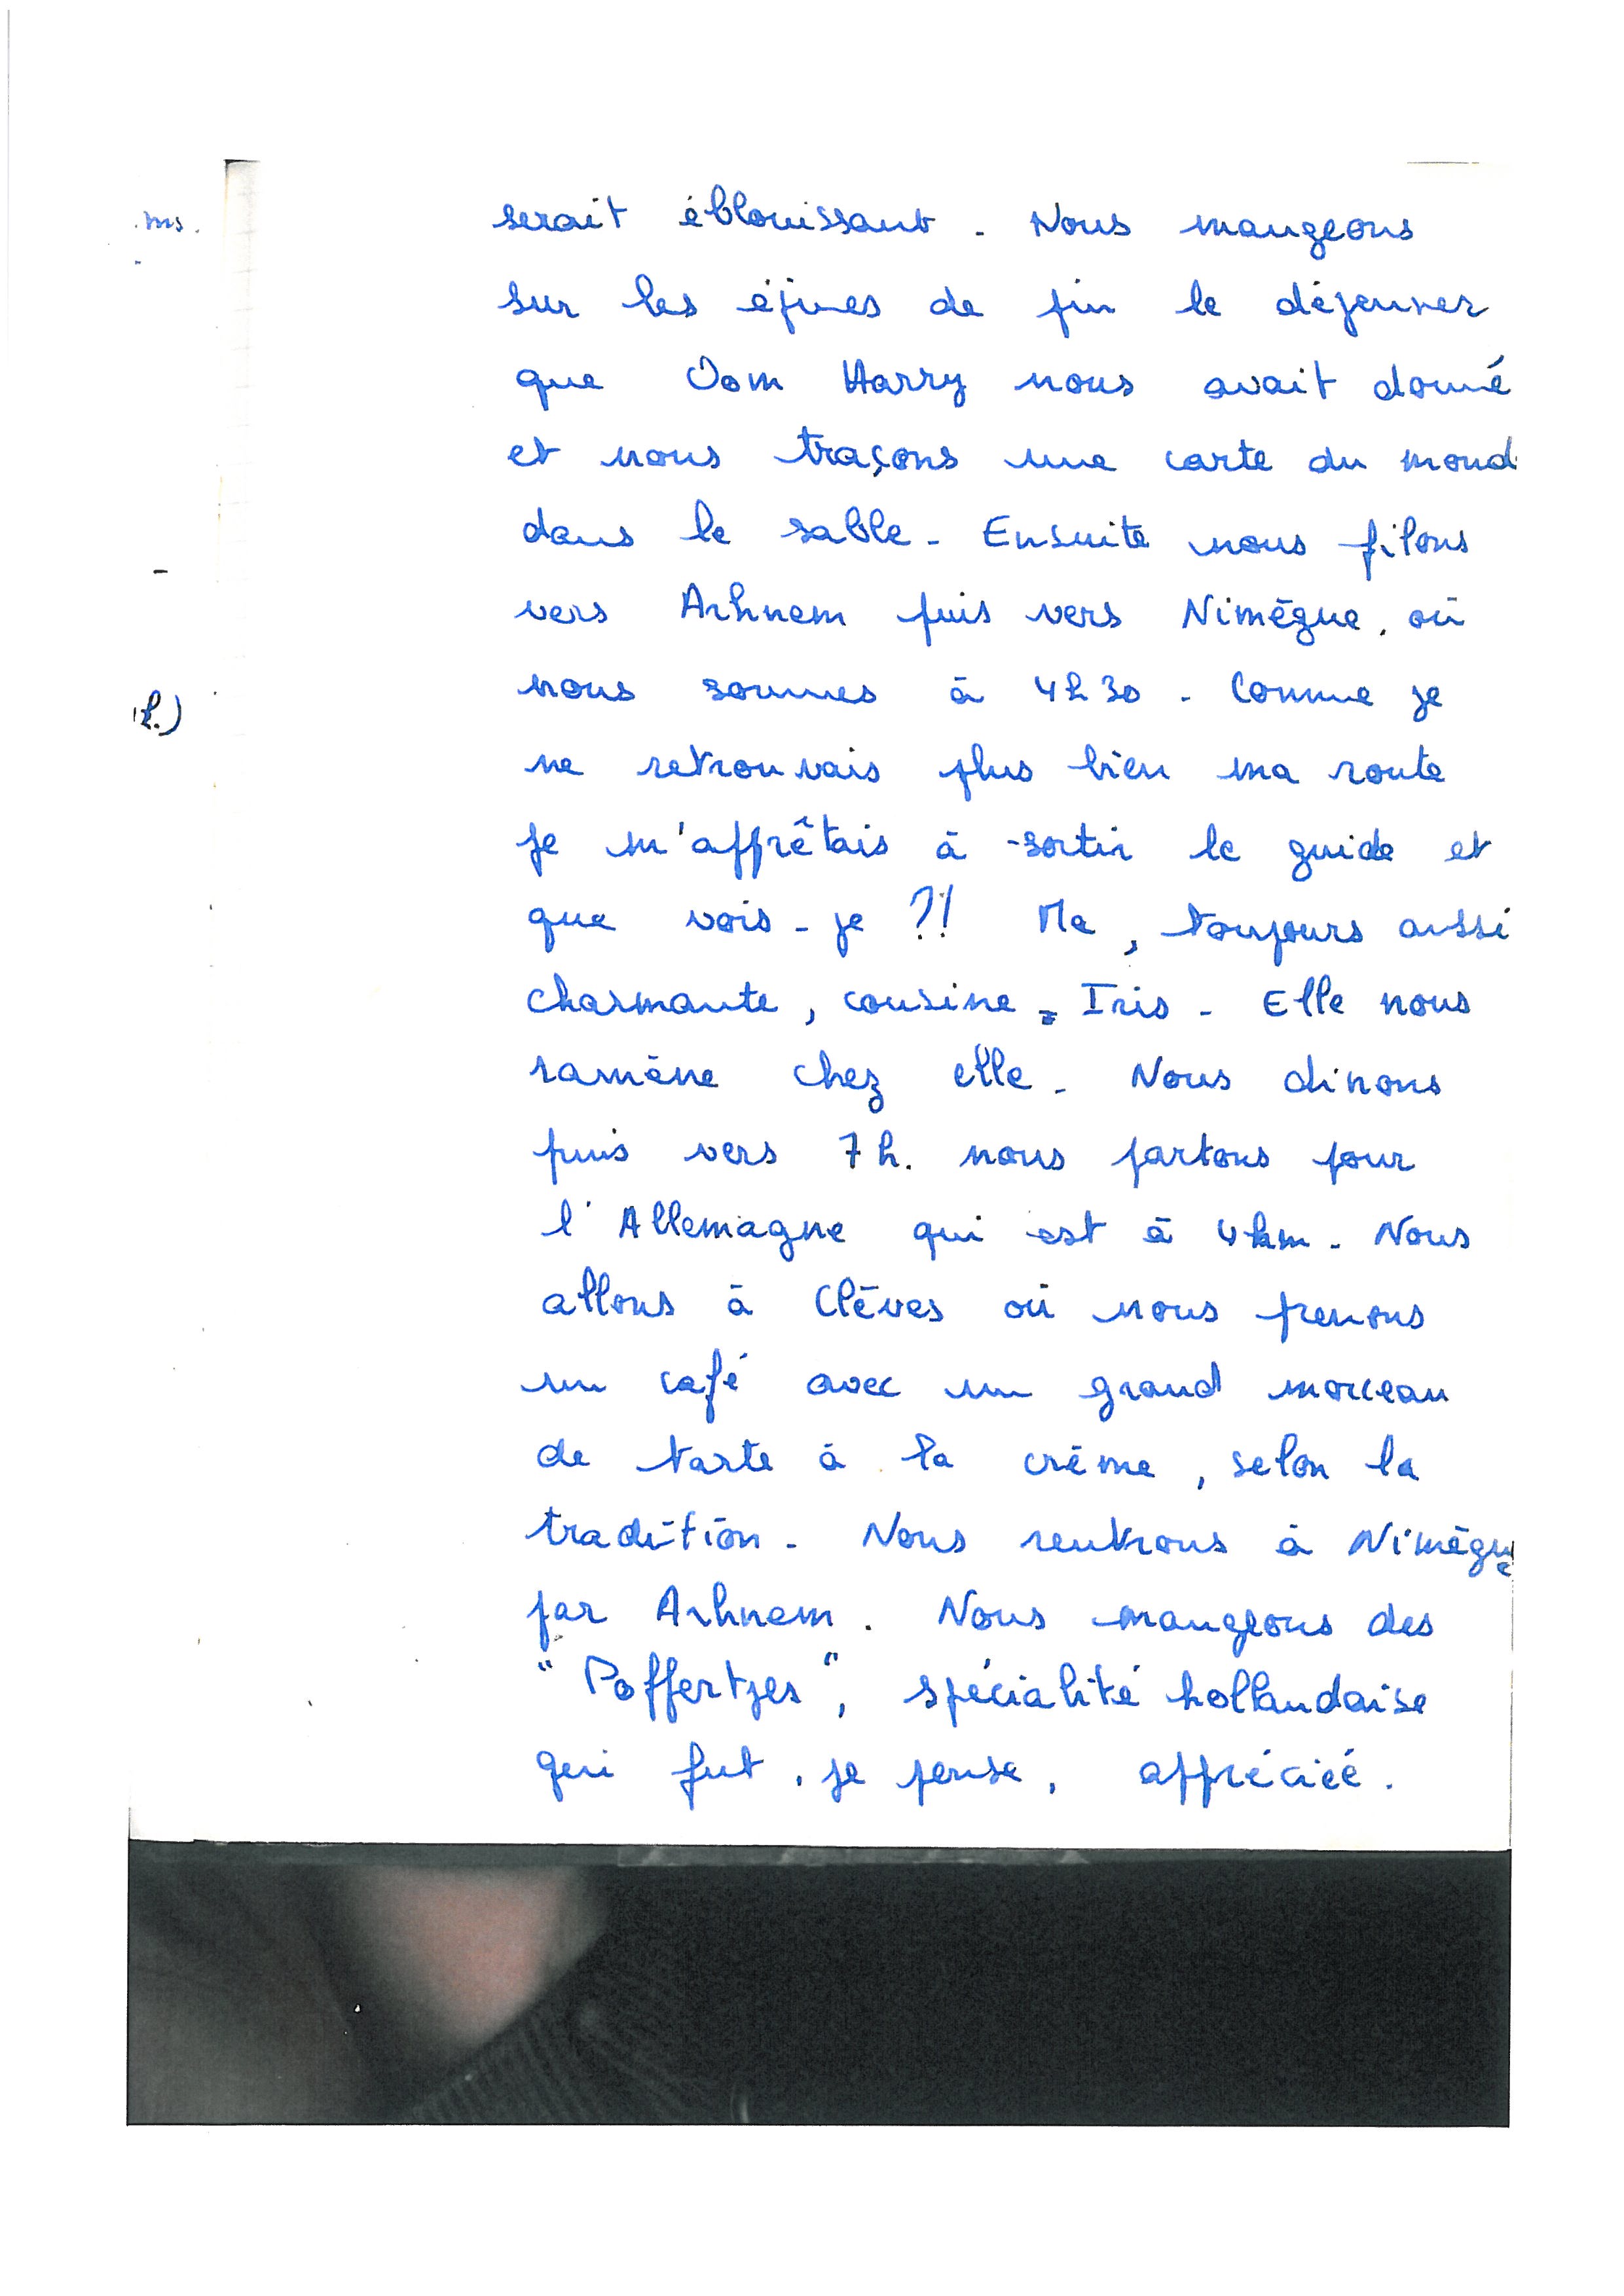 serait éblouissant. Nous mangeons
sur les épines de pin le déjeuner
que Oom Harry nous avait donné
et nous traçons une carte du mond
dans le sable. Ensuite nous filons
vers Arhnem puis vers Nimègue, où
nous sommes à 4h30. Comme je
ne retrouvais plus bien ma route
je m'apprêtais à sortir le guide et
que vois-je ?! Ma, toujours aussi
charmante, cousine, Iris. Elle nous
ramène chez elle. Nous dinons
puis vers 7h. nous partons pour
l'Allemagne qui est à 4km. Nous
allons à Clèves où nous prenons
un café avec un grand morceau
de tarte à la crème, selon la
tradition. Nous rentrons à Nimègue
par Arhnem. Nous mangeons des
"Poffertjes", spécialité hollandaise
qui fut, je pense, appréciée.
ms.
h.)